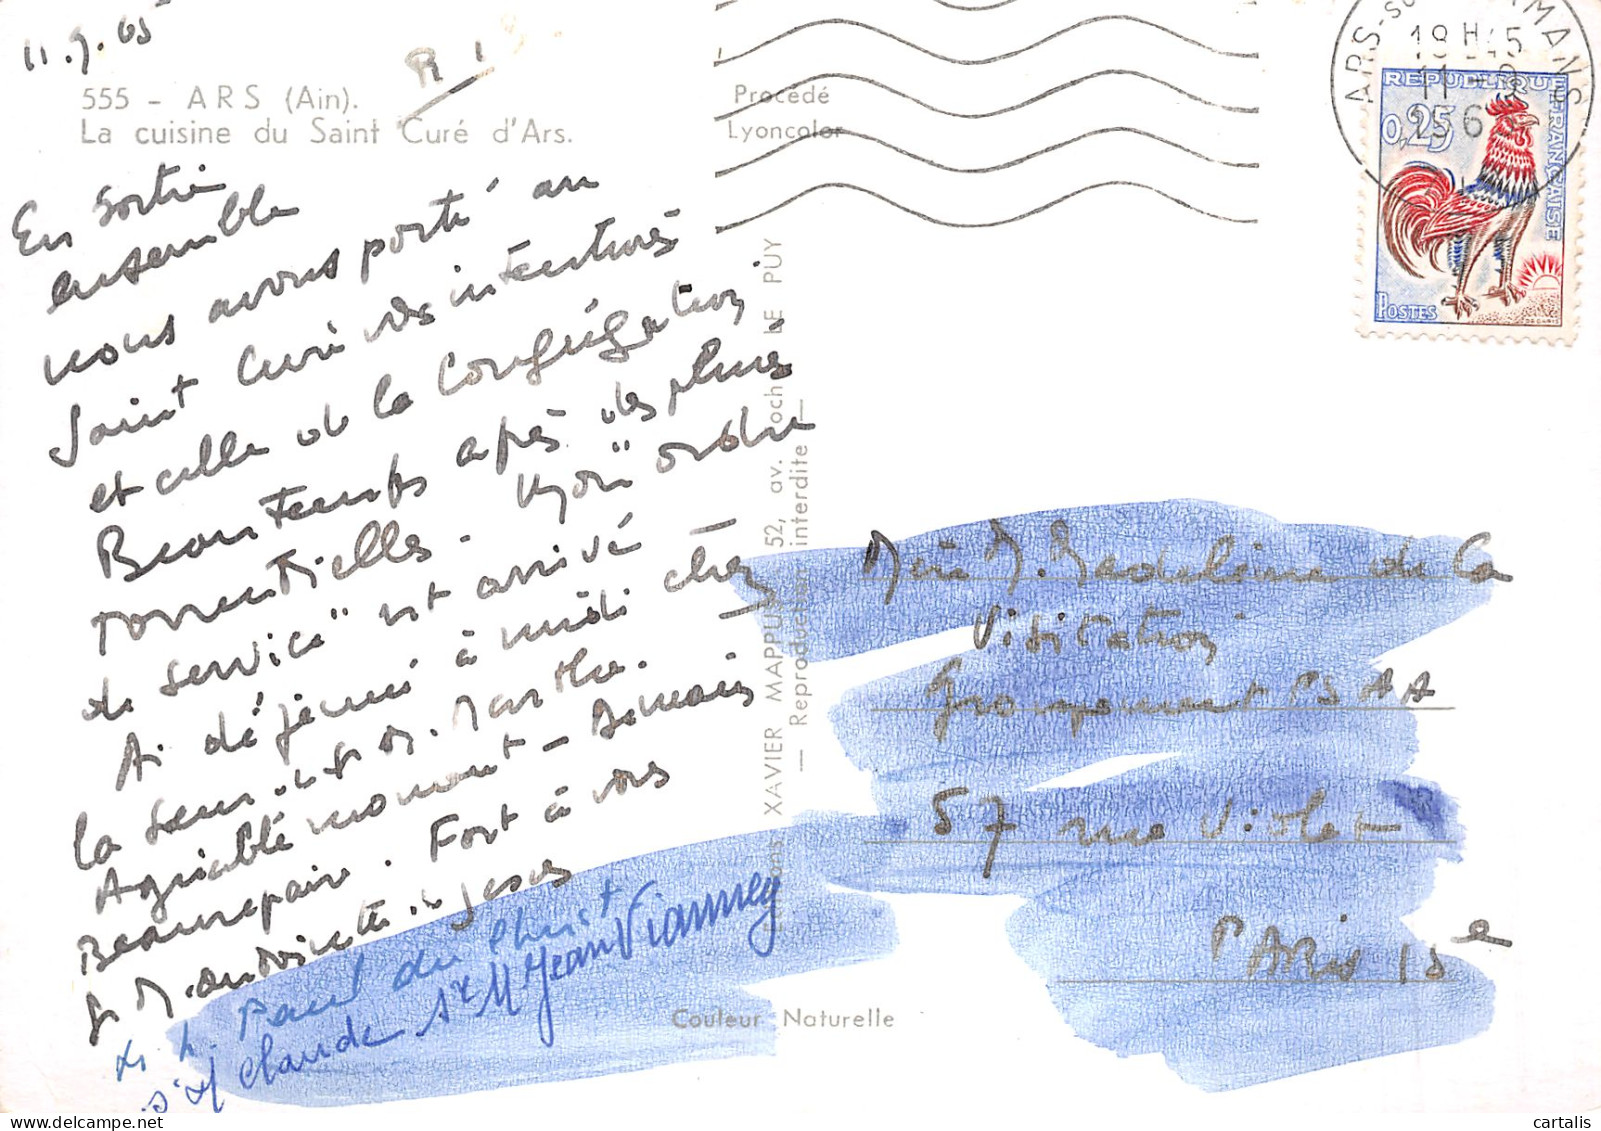 11.9.65
R 1
555 - ARS (Ain).
La cuisine du Saint Curé d'Ars.
Procédé
Lyoncolor
En sortie
ensemble
nous avons porté au
Saint Curé vos intentions
et celle de la Congrégation.
Beau temps après des pluies
torrentielles. Mon "ordre
de service" est arrivé
Ai déjeuné à midi chez
la sœur de M. Marthe.
Agréable moment - Demain
Beaurepaire. Fort à vous
de Jésus
Paul du Christ
Claude Sr M Jean Vianney
XAVIER MAPPUS, 52, av. Foch LE PUY
— Reproduction interdite —
ARS-SUR-FORMANS
18 H 45
11 - 9
196
REPUBLIQUE FRANÇAISE
0,25
POSTES
DECARIS
Mère M. Madeleine de la
Visitation
Groupement
57 rue Violet
PARIS 15e
Couleur Naturelle
cartalis